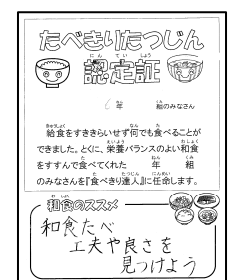 たべきりたつじん
認定証
年 組のみなさん
給食をすききらいせず何でも食べることが
できました。とくに、栄養バランスのよい和食
をすすんで食べてくれた 年 組
のみなさんを『食べきり達人』に任命します。
和食のススメ
和食たべ
工夫や良さを
見つけよう